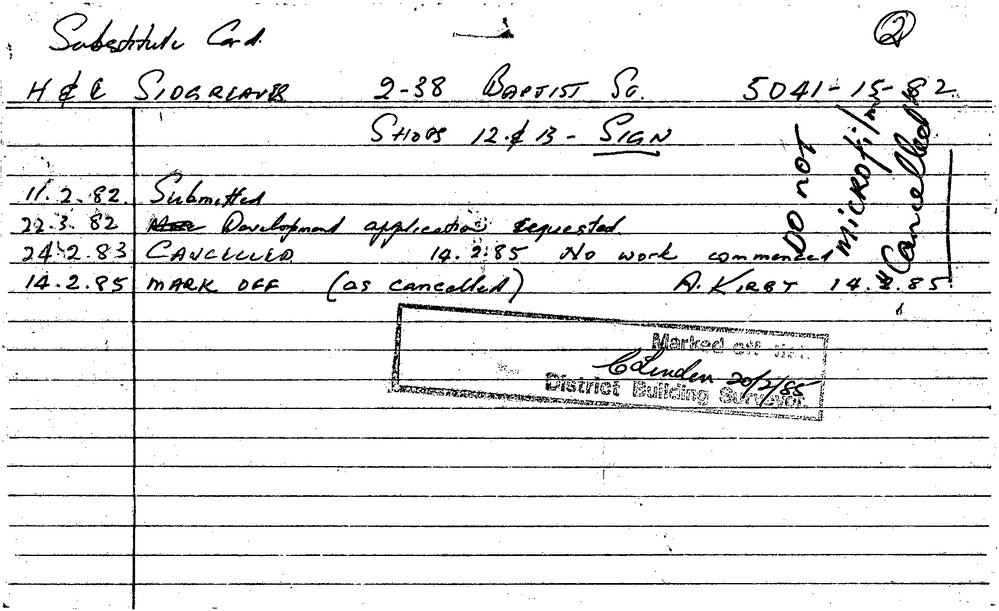 Substitute Card.
2
H & C SIDGREAVES 2-38 BAPTIST ST. 5041-15-82
SHOPS 12 & 13 - SIGN
DO NOT
MICROFILM
"Cancelled"
11.2.82. Submitted
22.3.82 Development application requested.
24.2.83 CANCELLED 14.2.85 No work commenced
14.2.85 MARK OFF (as cancelled) A. KIRBY 14.2.85.
Marked off list.
C Linden 20/2/85
District Building Surveyor.